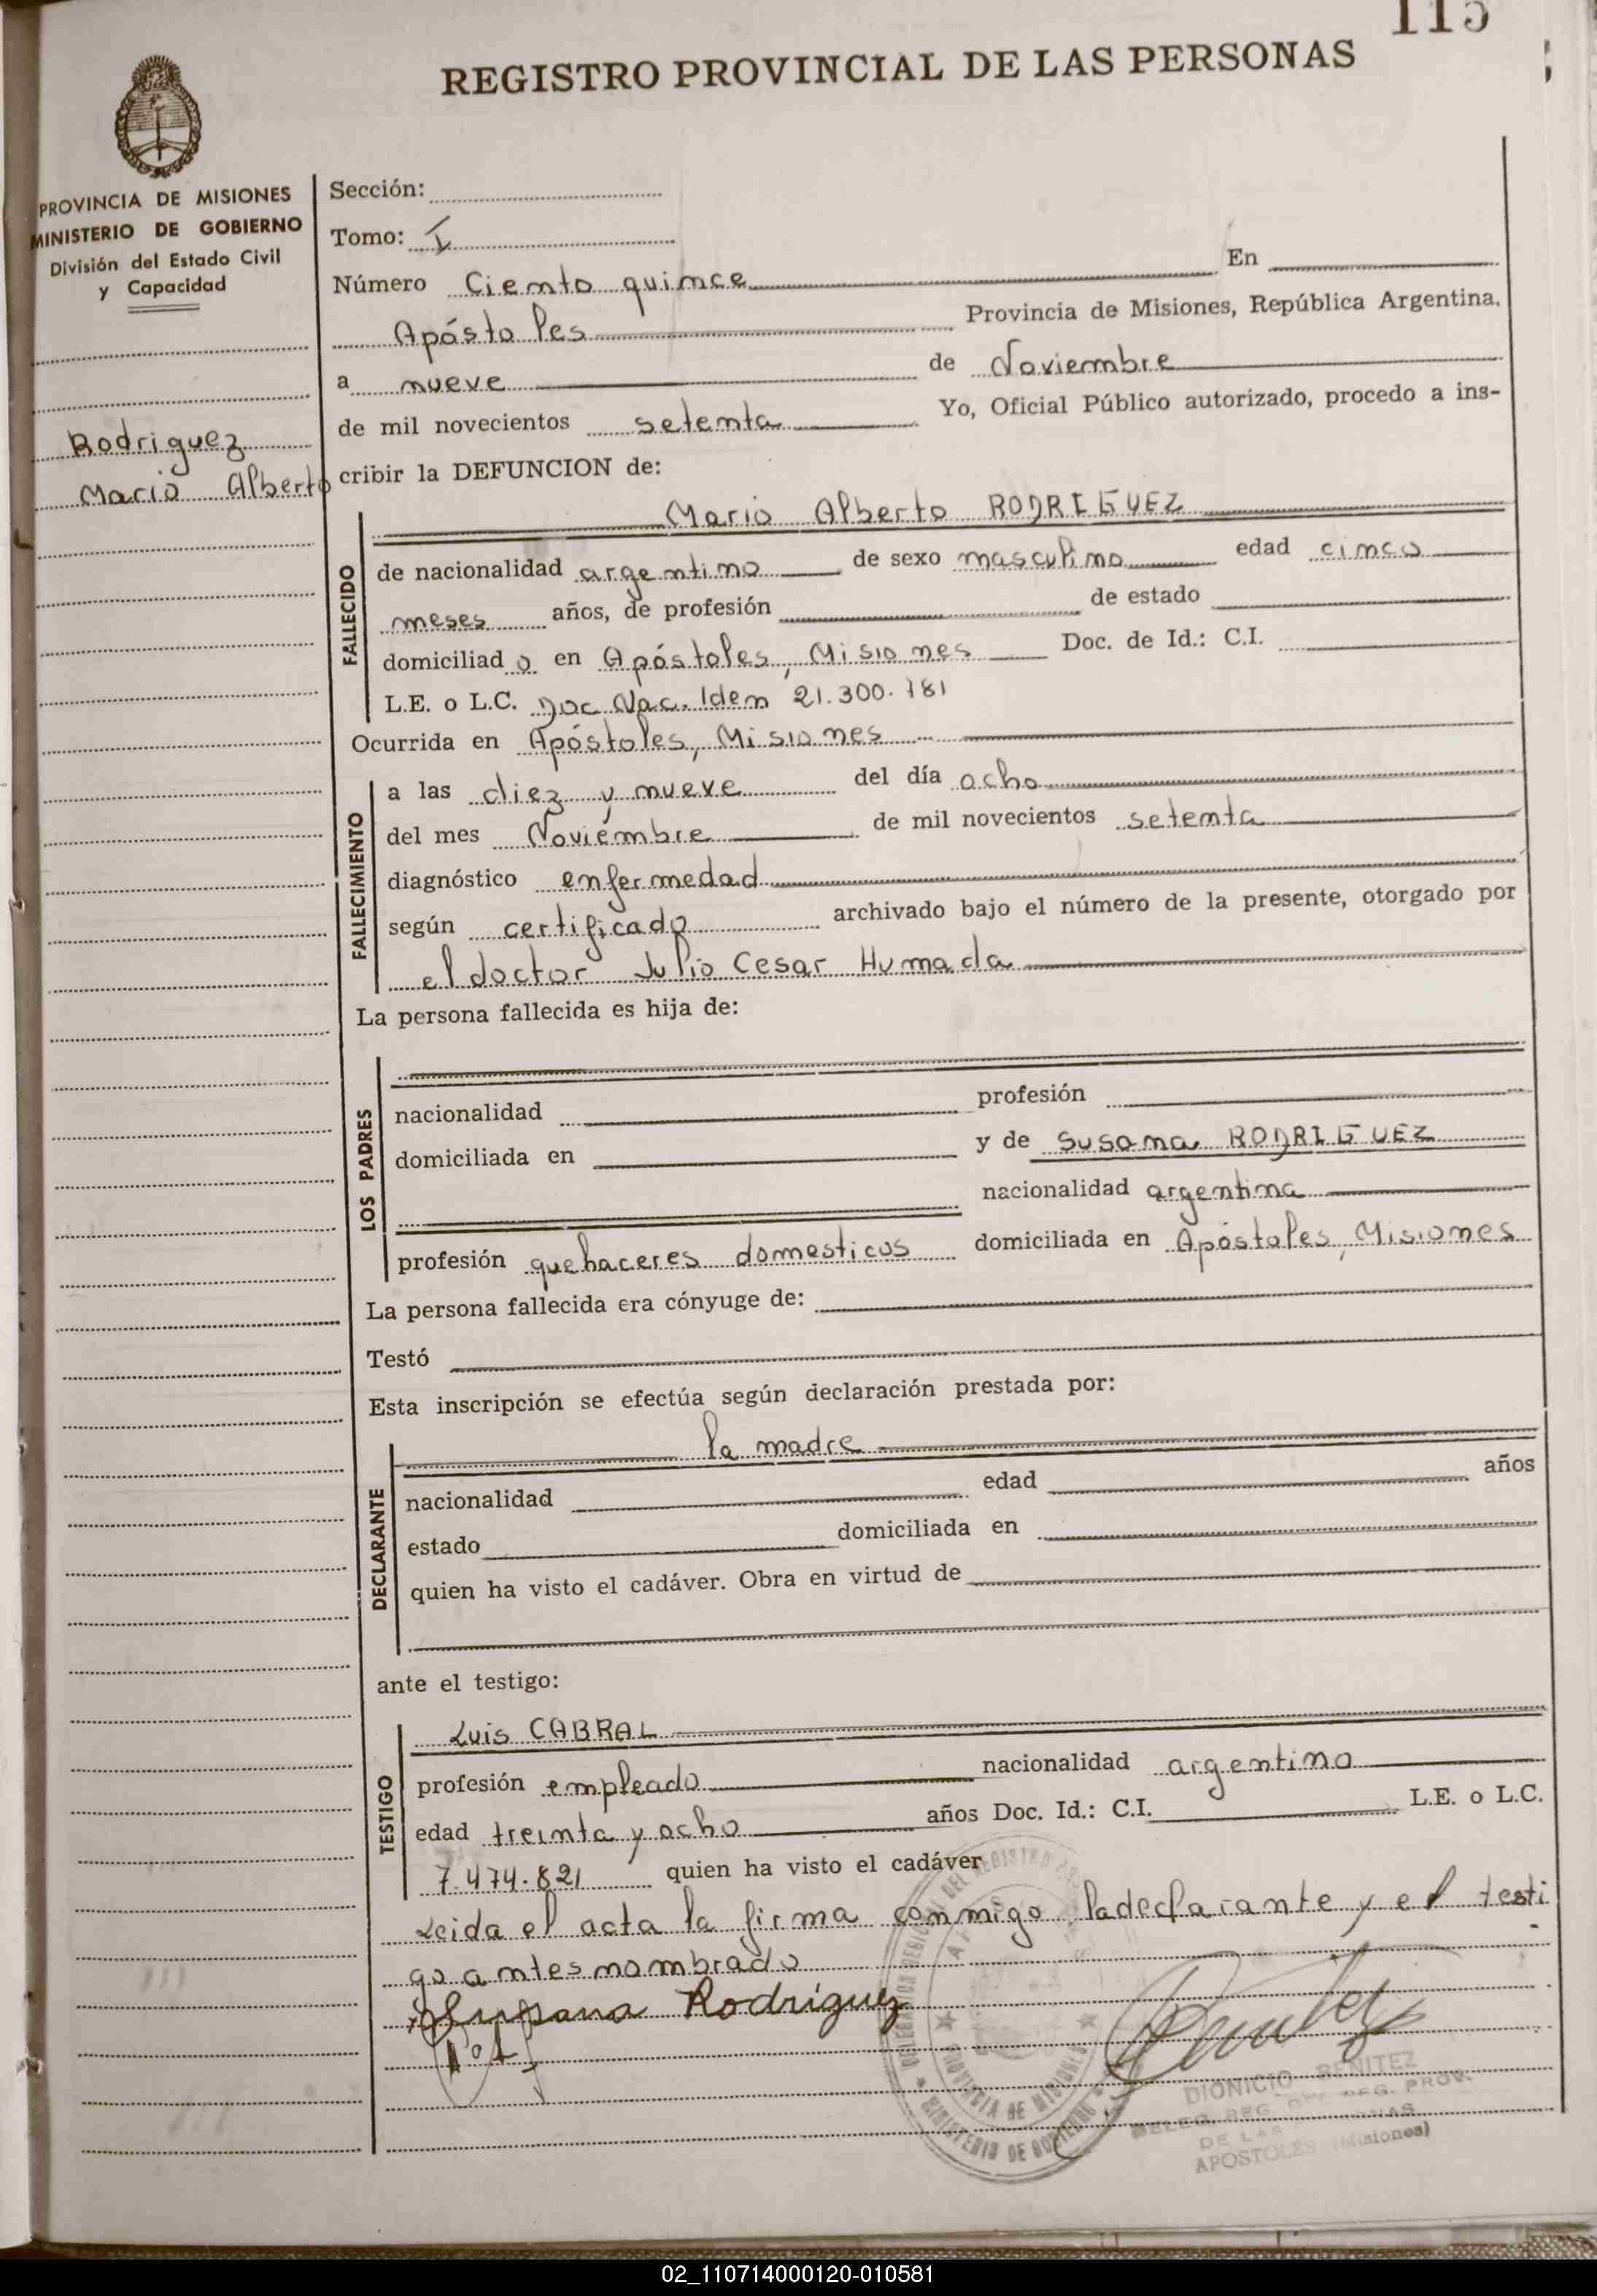 115
REGISTRO PROVINCIAL DE LAS PERSONAS
PROVINCIA DE MISIONES
MINISTERIO DE GOBIERNO
División del Estado Civil
y Capacidad
Rodriguez
Mario Alberto
Sección:
Tomo: I
Número Ciento quince En
Apóstoles Provincia de Misiones, República Argentina,
a nueve de Noviembre
de mil novecientos setenta Yo, Oficial Público autorizado, procedo a ins-
cribir la DEFUNCION de:
Mario Alberto RODRIGUEZ
FALLECIDO
de nacionalidad argentino de sexo masculino edad cinco
meses años, de profesión de estado
domiciliad o en Apóstoles, Misiones Doc. de Id.: C.I.
L.E. o L.C. Doc Nac. Iden 21.300.781
Ocurrida en Apóstoles, Misiones
FALLECIMIENTO
a las diez y nueve del día ocho
del mes Noviembre de mil novecientos setenta
diagnóstico enfermedad
según certificado archivado bajo el número de la presente, otorgado por
el doctor Julio Cesar Humada
La persona fallecida es hija de:
LOS PADRES
nacionalidad profesión
domiciliada en y de Susana RODRIGUEZ
nacionalidad argentina
profesión quehaceres domesticos domiciliada en Apóstoles, Misiones
La persona fallecida era cónyuge de:
Testó
Esta inscripción se efectúa según declaración prestada por:
la madre
DECLARANTE
nacionalidad edad años
estado domiciliada en
quien ha visto el cadáver. Obra en virtud de
ante el testigo:
TESTIGO
Luis CABRAL
profesión empleado nacionalidad argentino
edad treinta y ocho años Doc. Id.: C.I. L.E. o L.C.
7.474.821 quien ha visto el cadáver
Leida el acta la firma conmigo la declarante y el testi
go antes nombrado
Susana Rodriguez
DEL REGISTRO
PROVINCIA DE MISIONES
MINISTERIO DE GOBIERNO
DIONICIO BENITEZ
DELEG. REG. REG. PROV.
DE LAS
APOSTOLES (Misiones)
02_110714000120-010581